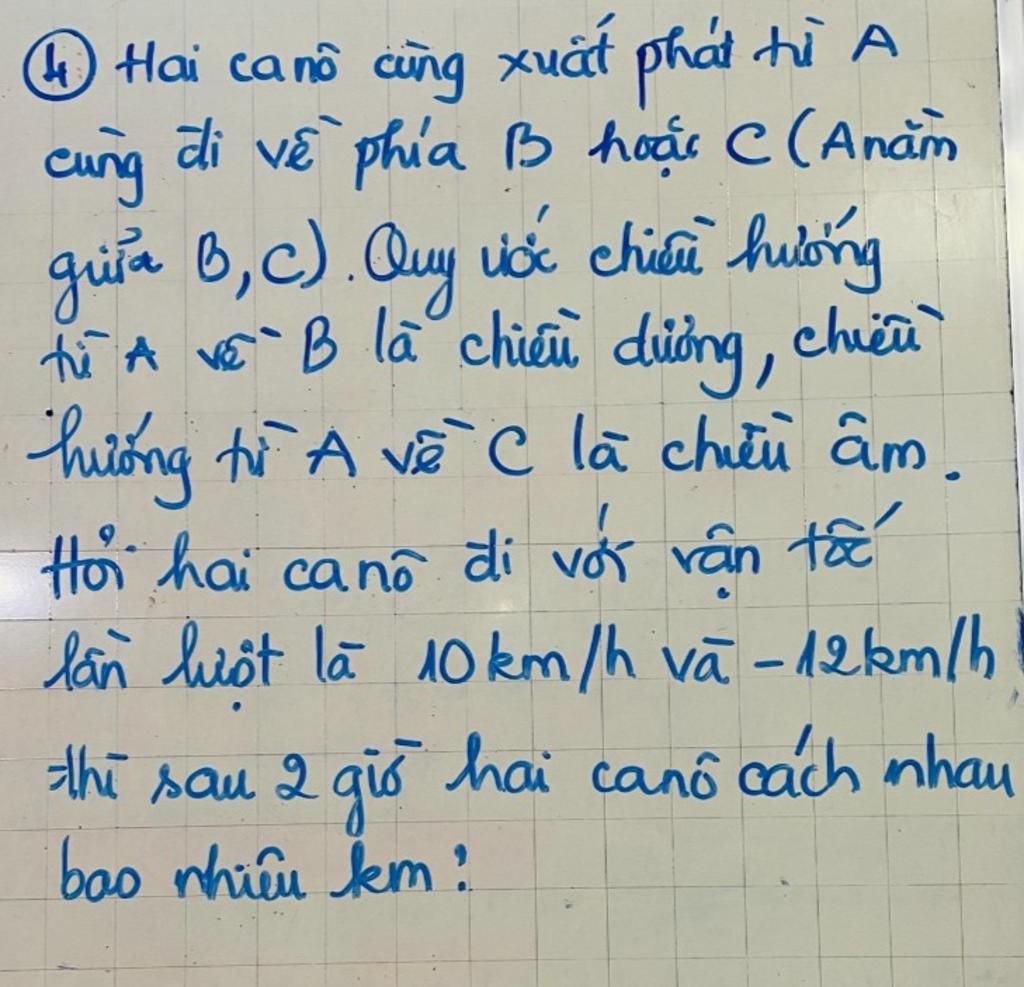 ④ Hai canô cùng xuất phát từ A
cùng đi về phía B hoặc C (A nằm
giữa B, C). Quy ước chiều hướng
từ A về B là chiều dương, chiều
hướng từ A về C là chiều âm.
Hỏi hai canô đi với vận tốc
lần lượt là 10km/h và -12km/h
thì sau 2 giờ hai canô cách nhau
bao nhiêu km?